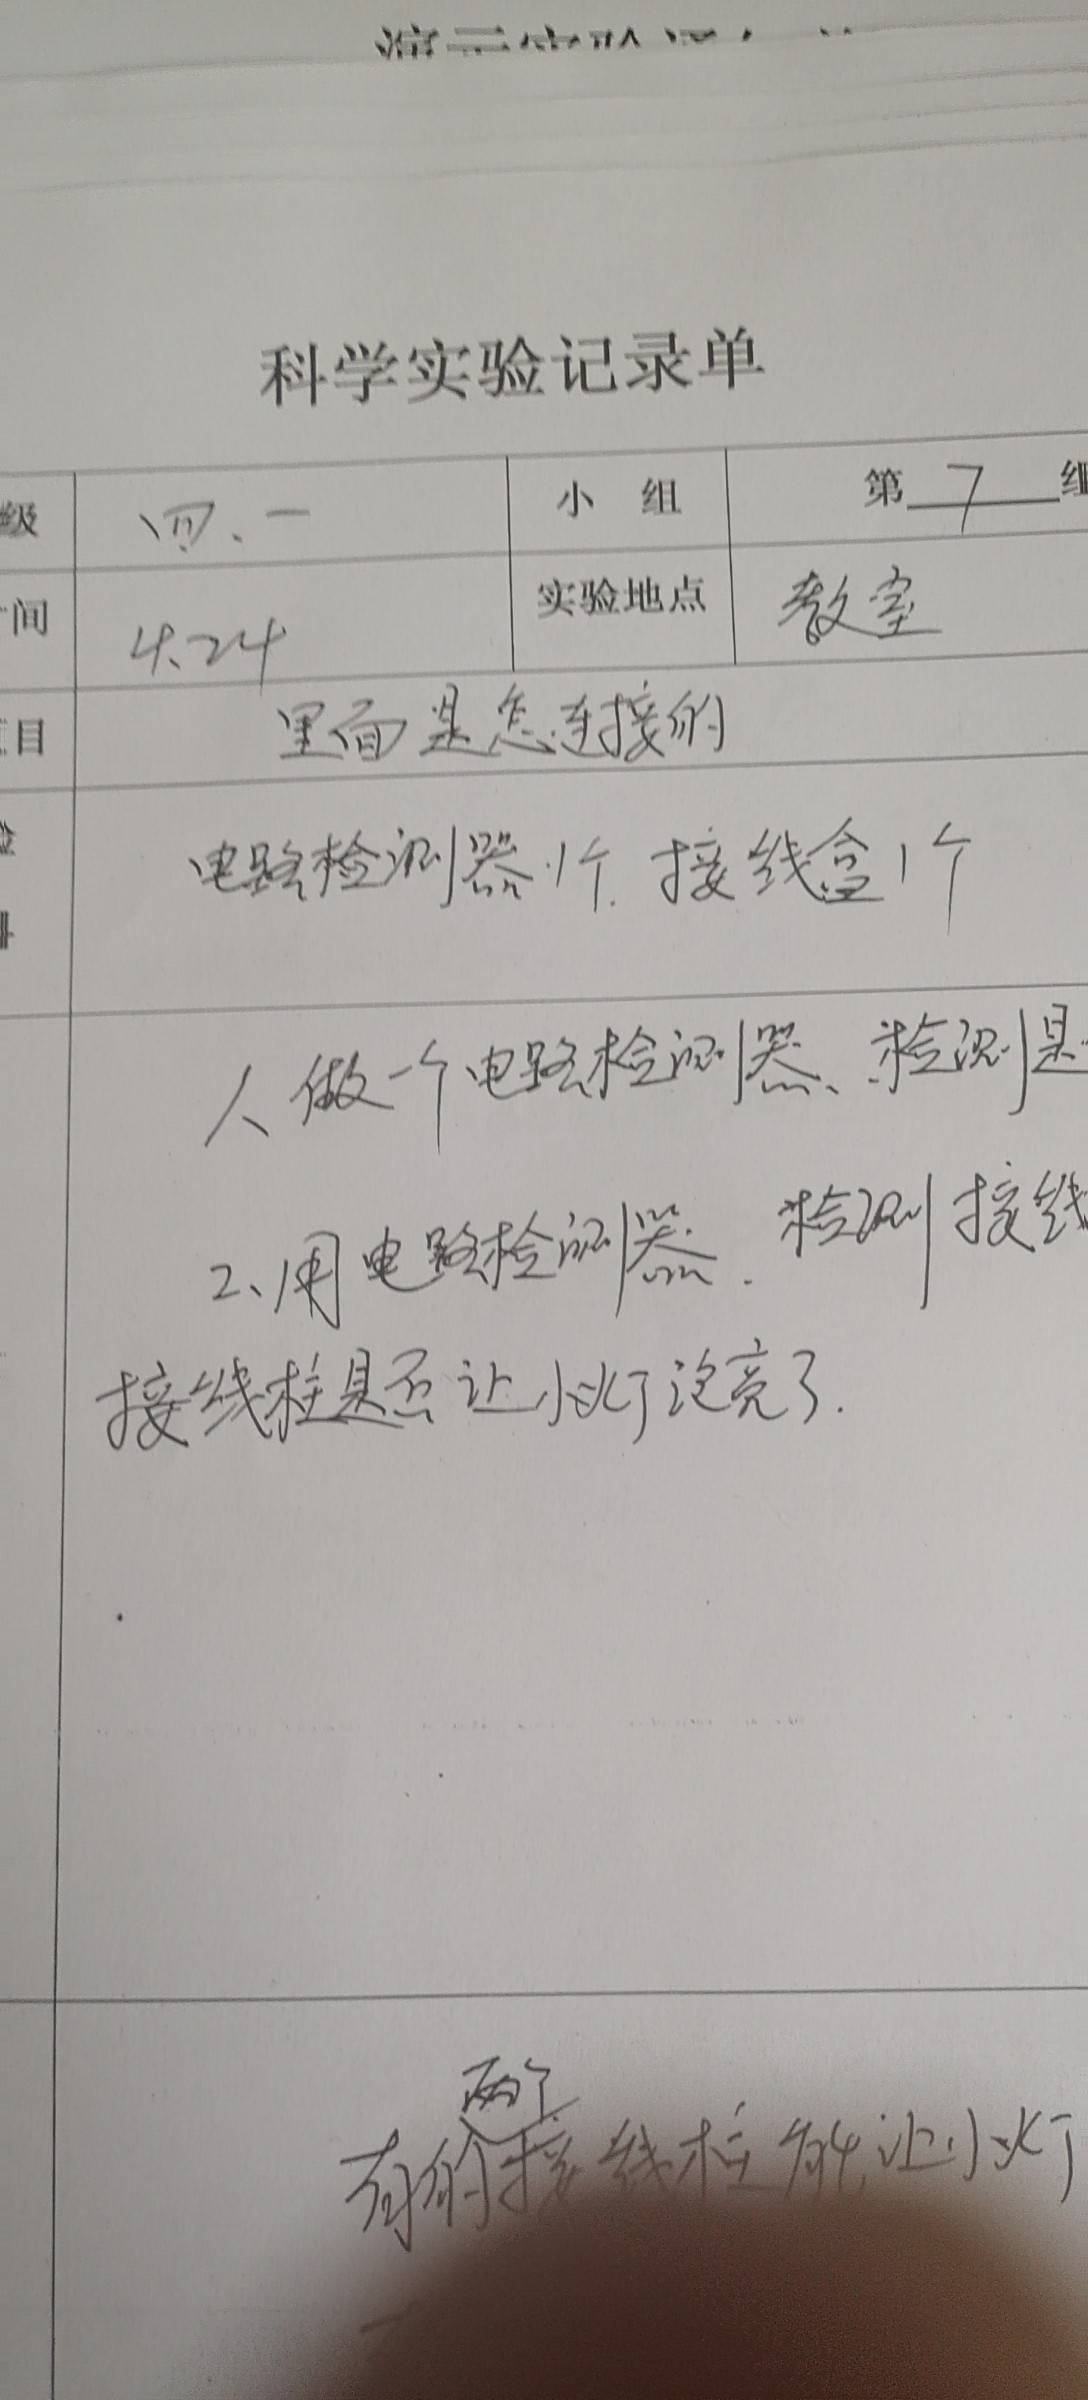 科学实验记录单
级 四.一 小 组 第 7 组
间 4.24 实验地点 教室
目 里面是怎连接的
电路检测器1个. 接线盒1个
人做一个电路检测器、检测是
2、用电路检测器. 检测接线
接线柱是否让小灯泡亮了.
两个
有的接线柱能让小灯